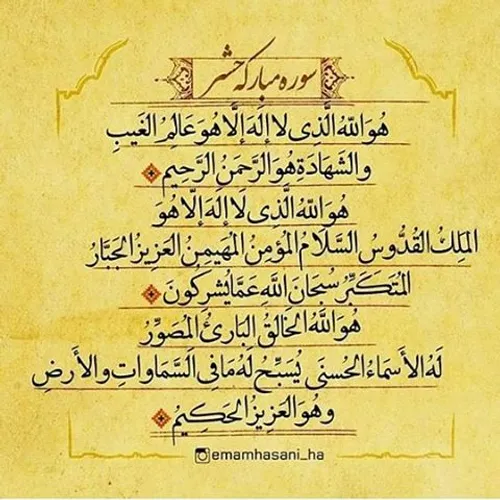 سوره مبارکه حشر
هُوَ اللّٰهُ الَّذِی لا إِلَهَ إِلَّا هُوَ عَالِمُ الغَیبِ
وَالشَّهَادَةِ هُوَ الرَّحمَنُ الرَّحِیمُ
هُوَ اللّٰهُ الَّذِی لَا إِلَهَ إِلَّا هُوَ
المَلِكُ القُدُّوسُ السَّلَامُ المُؤمِنُ المُهَیمِنُ العَزِیزُ الجَبَّارُ
المُتَكَبِّرُ سُبحَانَ اللّٰهِ عَمَّا یُشرِكُونَ
هُوَ اللّٰهُ الخَالِقُ البَارِئُ المُصَوِّرُ
لَهُ الأَسمَاءُ الحُسنَی یُسَبِّحُ لَهُ مَا فِی السَّمَاوَاتِ وَالأَرضِ
وَهُوَ العَزِیزُ الحَكِیمُ
emamhasani_ha